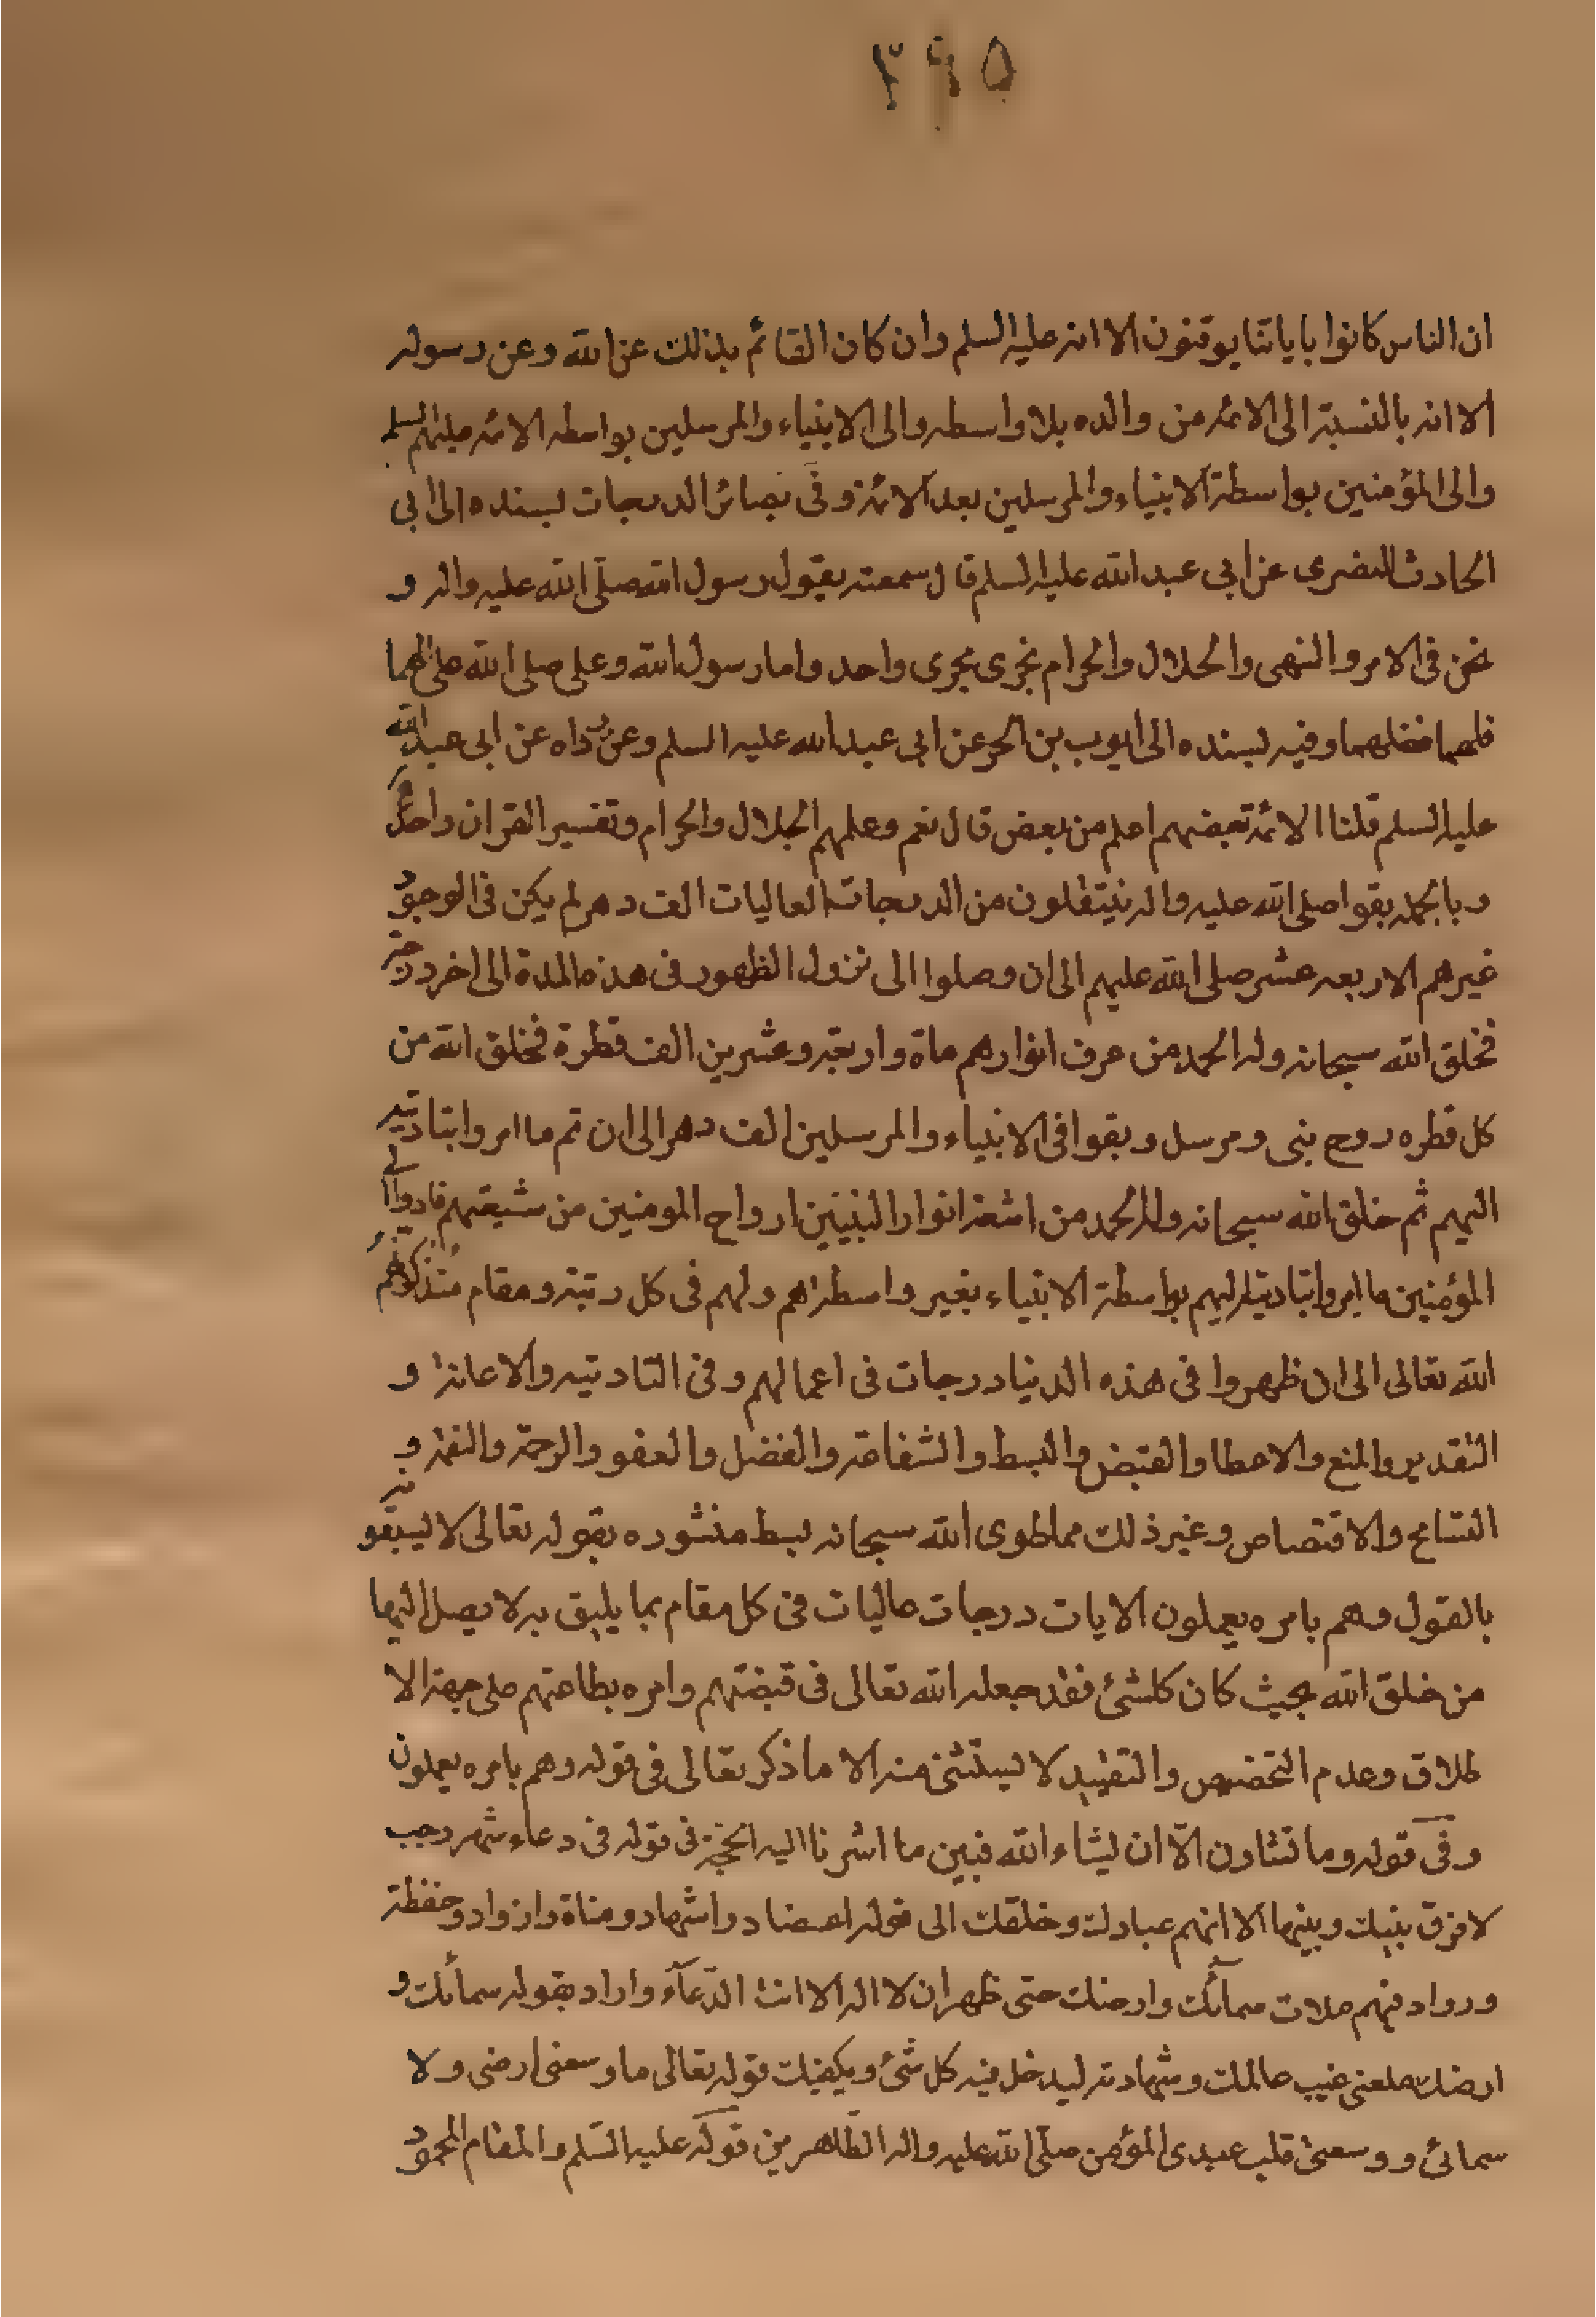 ٣٩٥
ان الناس كانوا باياتنا يوقنون الا انه عليه السلم وان كان القائم بذلك عن الله وعن رسوله
الا انه بالنسبة الى الائمه من والده بلا واسطه والى الانبياء والمرسلين بواسطه الائمه عليهم السلم
والى المؤمنين بواسطة الانبياء والمرسلين بعد الائمة وفى بصائر الدرجات بسنده الى ابى
الحارث النضرى عن ابى عبد الله عليه السلم قال سمعته يقول رسول الله صلّى الله عليه واله و
نحن فى الامر والنهى والحلال والحرام نجرى مجرى واحد واما رسول الله وعلى صلى الله على
فلهما فضلهما وفيه بسنده الى ايوب بن الحر عن ابى عبد الله عليه السلم وعن رواه عن ابى عبد الله
عليه السلم قلنا الائمة بعضهم اعلم من بعض قال نعم وعلمهم الحلال والحرام وتفسير القران واحد
وبالجمله بقوا صلى الله عليه واله ينتقلون من الدرجات العاليات الف دهر لم يكن فى الوجود
غيرهم الاربعه عشر صلى الله عليهم الى ان وصلوا الى نزول الظهور فى هذه المدة الى اخر درجة
فخلق الله سبحانه وله الحمد من عرق انوارهم ماة واربعة وعشرين الف قطرة فخلق الله من
كل قطره روح نبى ومرسل وبقوا فى الانبياء والمرسلين الف دهر الى ان تم ما امروا بتاديته
اليهم ثم خلق الله سبحانه وله الحمد من اشعة انوار النبيين ارواح المومنين من شيعتهم فادوا الى
المؤمنين ما امروا بتاديته اليهم بواسطة الانبياء بغير واسطة اهم ولهم فى كل رتبة ومقام منذ
الله تعالى الى ان ظهروا فى هذه الدنيا درجات فى اعمالهم وفى التاديه والاعانة و
التقدير والمنع والاعطا والقبض والبسط والشفاعة والفضل والعفو والرحمة والنقمة و
التسامح والاقتصاص وغير ذلك مما طوى الله سبحانه بسط منشوره بقوله تعالى لا يسبقونه
بالقول وهم بامره يعملون الايات درجات عاليات فى كل مقام بما يليق به لا يصل اليها
من خلق الله بحيث كان كلشئ فقد جعله الله تعالى فى قبضتهم وامره بطاعتهم على جهة الا
طلاق وعدم التخصيص والتقييد لا يستثنى منه الا ما ذكر تعالى فى قوله وهم بامره يعملون
وفى قوله وما تشاون الّا ان يشاء الله فبين ما اشرنا اليه الحجة فى قوله فى دعاء شهر رجب
لا فرق بينك وبينها الا انهم عبادك وخلقك الى قوله اعضاد واشهاد ومناة وازواد وحفظة
ورواد فبهم ملات سمائك وارضك حتى ظهر ان لا اله الا انت الدّعآء واراد بقوله سمائك و
ارضك معنى غيب عالمك وشهادته ليدخل فيه كل شئ ويكفيك قوله تعالى ما وسعنى ارضى ولا
سمائى ووسعنى قلب عبدى المؤمن صلّى الله عليه واله الطّاهرين قوله عليه السّلم والمقام المحمود